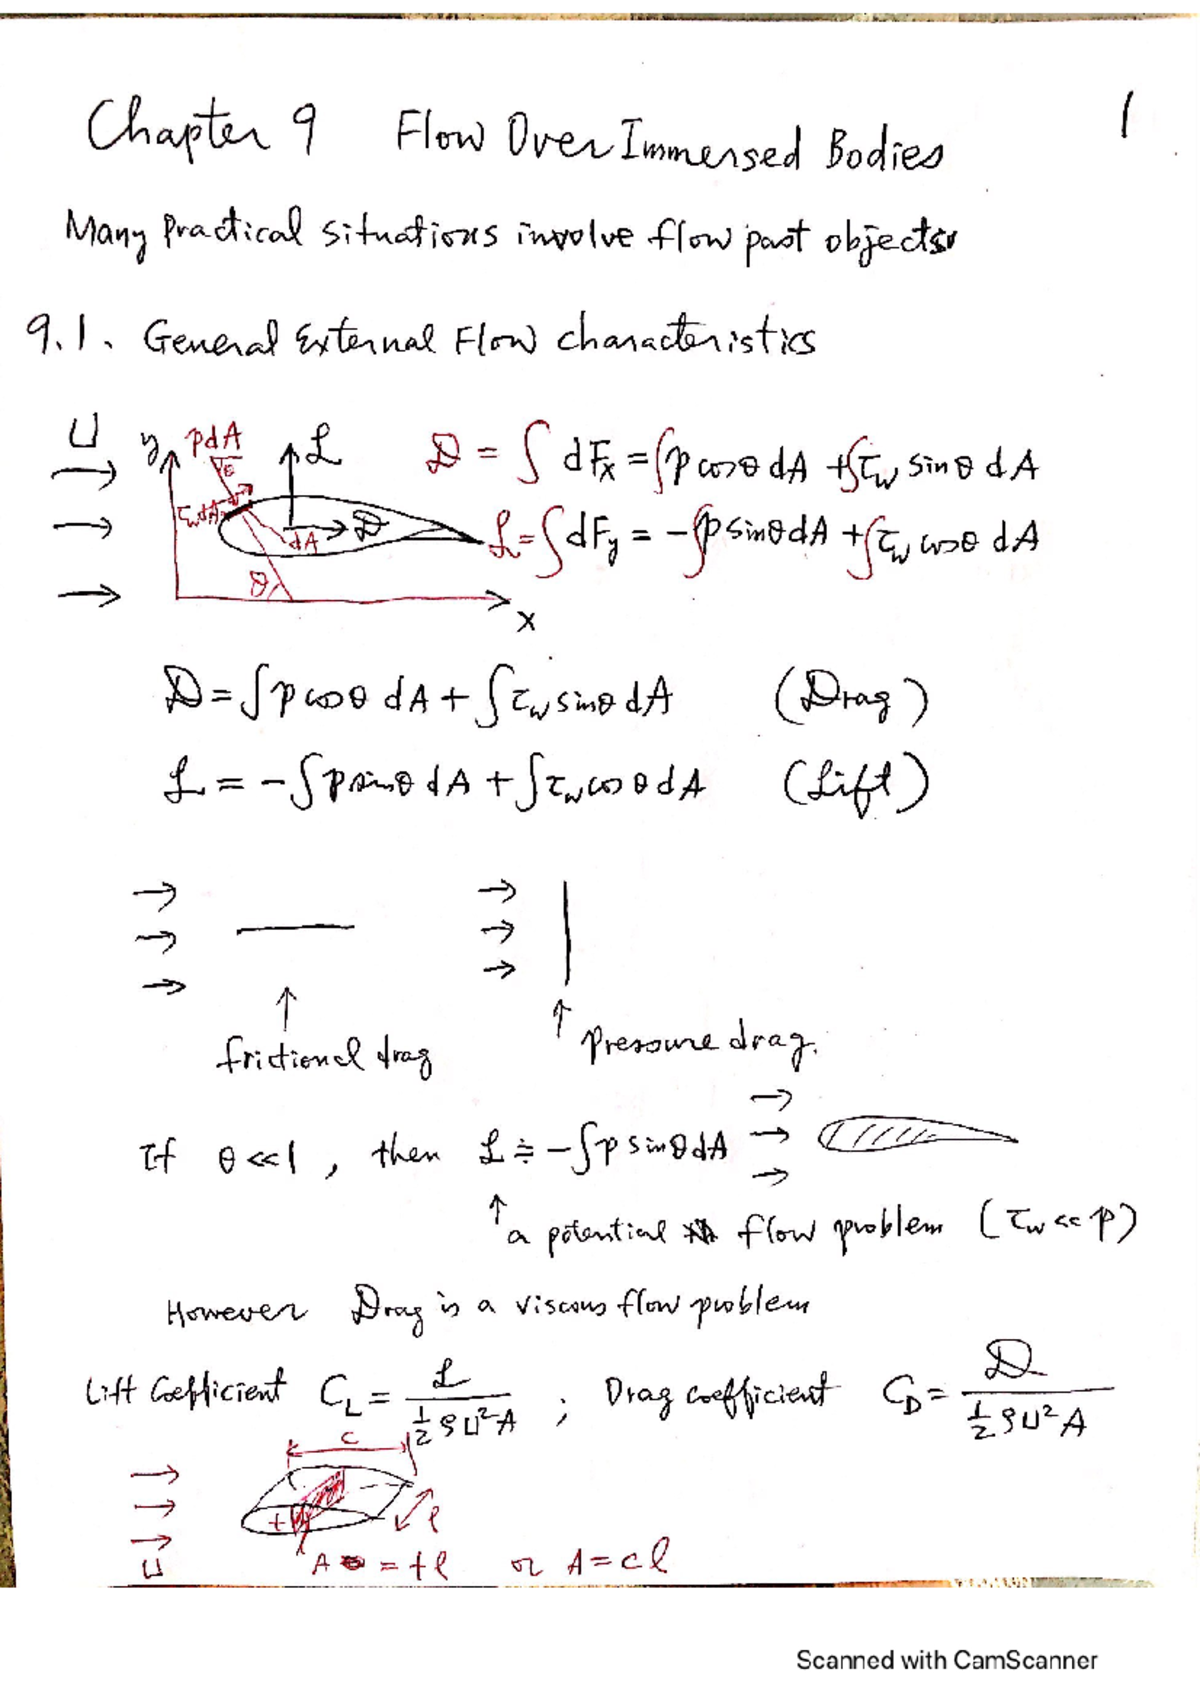 Chapter 9 Flow Over Immersed Bodies
1
Many practical situations involve flow past objects
9.1. General External Flow characteristics
U
y
pdA
θ
τw dA
dA
θ
x
ℒ
𝒟
𝒟 = ∫ dFx = ∫p cosθ dA + ∫τw sinθ dA
ℒ = ∫dFy = -∫p sinθ dA + ∫τw cosθ dA
𝒟 = ∫p cosθ dA + ∫τw sinθ dA (Drag)
ℒ = -∫p sinθ dA + ∫τw cosθ dA (Lift)
frictional drag
pressure drag.
If θ<<1, then ℒ ≑ -∫p sinθ dA
a potential flow problem (τw << p)
However Drag is a viscous flow problem
Lift Coefficient C_L = ℒ / ½ρU²A ; Drag coefficient C_D = 𝒟 / ½ρU²A
c
t
ℓ
U
A = tℓ or A = cℓ
Scanned with CamScanner